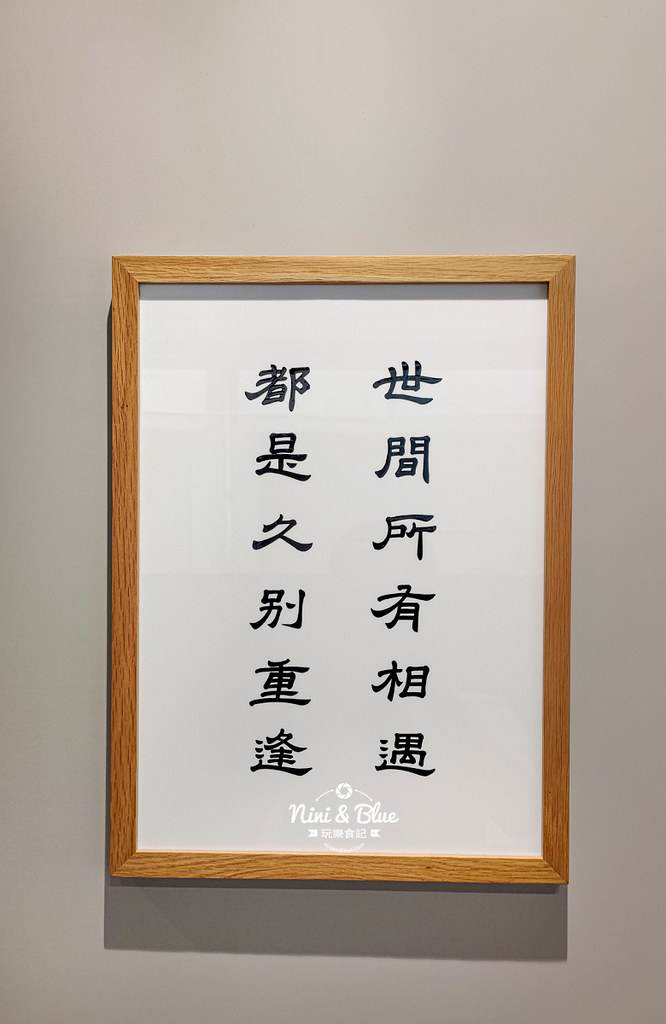 世間所有相遇
都是久別重逢
Nini & Blue
玩樂食記